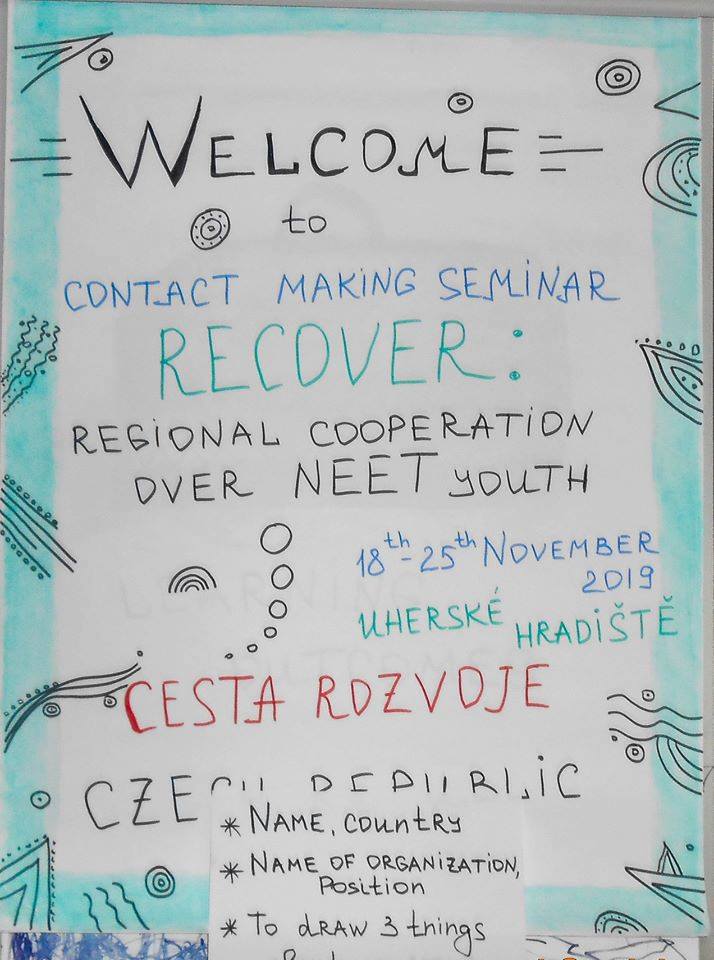 WELCOME
to
CONTACT MAKING SEMINAR
RECOVER:
REGIONAL COOPERATION
OVER NEET YOUTH
18th-25th NOVEMBER
2019
UHERSKÉ HRADIŠTĚ
CESTA ROZVOJE
CZECH REPUBLIC
* NAME, COUNTRY
* NAME OF ORGANIZATION,
POSITION
* TO DRAW 3 things